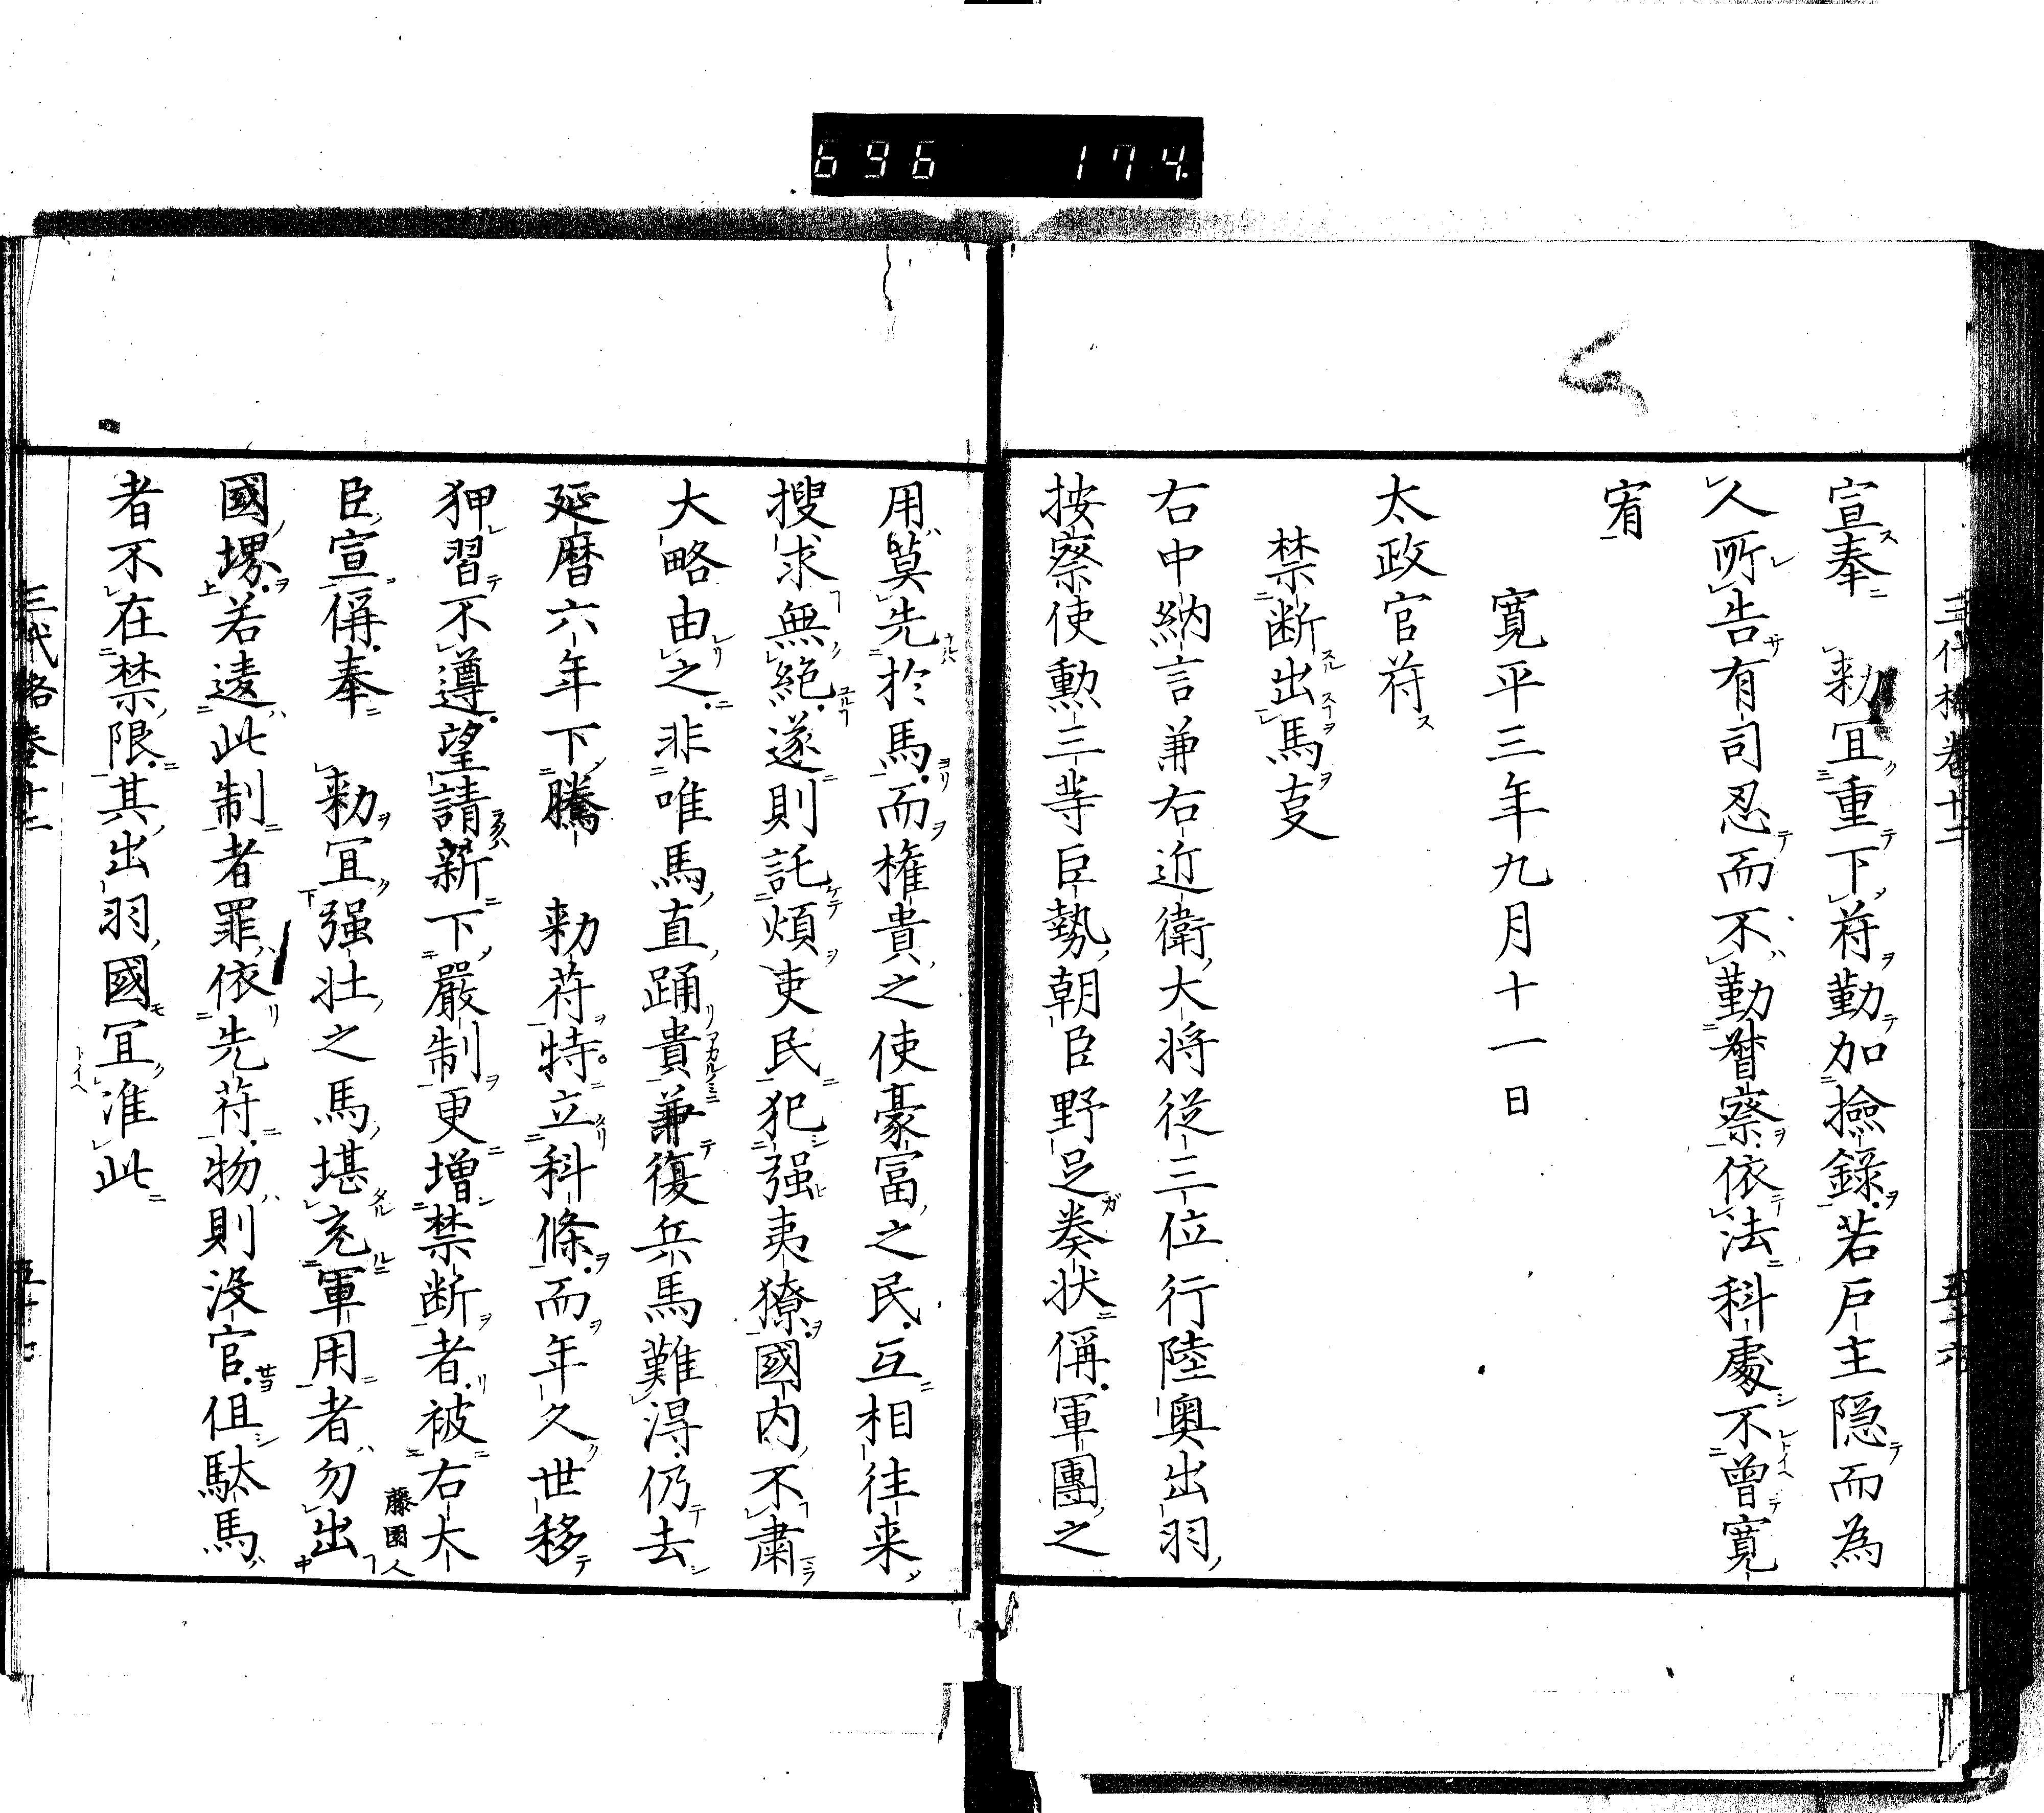 696 174
三代格卷十二
宣奉 勅冝重下符勤加撿錄若戸主隠而為
人所告有司忍而不勤督察依法科處不曽寛
宥
寛平三年九月十一日
太政官符
禁断出馬支
右中納言兼右近衛大将従三位行陸奥出羽
按察使勲三等巨勢朝臣野足奏状偁軍團之
用莫先於馬而権貴之使豪冨之民互相往来
搜求無絶遂則託煩吏民犯强夷獠國内不肅
大略由之非唯馬直踊貴兼復兵馬難得仍去
延暦六年下騰 勅符特立科條而年久世移
狎習不遵望請新下嚴制更増禁断者被右大
藤園人
臣宣偁奉 勅冝强壮之馬堪充軍用者勿出
國堺若違此制者罪依先符物則没官但駄馬
者不在禁限其出羽國冝准此
三代格卷十二